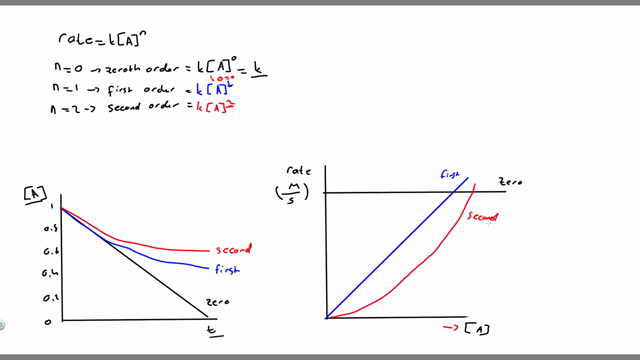 rate = k[A]ⁿ
n=0 → zeroth order = k[A]⁰ = k
n=1 → first order = k[A]¹
n=2 → second order = k[A]²
[A]
1
0.8
0.6
0.4
0.2
0
second
first
zero
t
rate
(M/s)
first
zero
second
→ [A]